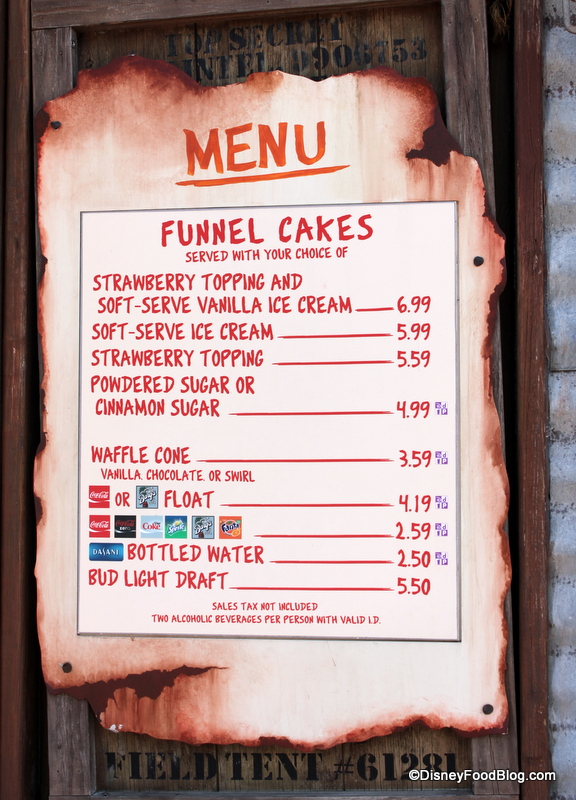 TOP SECRET
INTEL 9906753
MENU
FUNNEL CAKES
SERVED WITH YOUR CHOICE OF
STRAWBERRY TOPPING AND
SOFT-SERVE VANILLA ICE CREAM 6.99
SOFT-SERVE ICE CREAM 5.99
STRAWBERRY TOPPING 5.59
POWDERED SUGAR OR
CINNAMON SUGAR 4.99
WAFFLE CONE 3.59
VANILLA, CHOCOLATE, OR SWIRL
Coca-Cola OR Barq's FLOAT 4.19
Coca-Cola Coca-Cola zero Diet Coke Sprite Barq's Fanta 2.59
DASANI BOTTLED WATER 2.50
BUD LIGHT DRAFT 5.50
SALES TAX NOT INCLUDED
TWO ALCOHOLIC BEVERAGES PER PERSON WITH VALID I.D.
FIELD TENT #61281
©DisneyFoodBlog.com